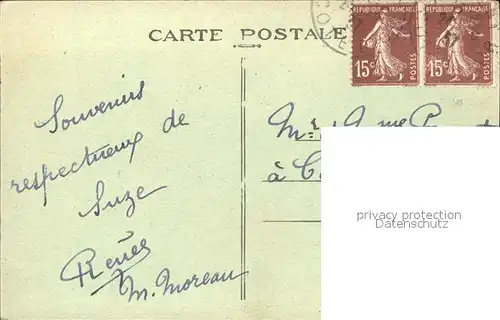 CARTE POSTALE
REPUBLIQUE FRANÇAISE
15c
POSTES
REPUBLIQUE FRANÇAISE
15c
POSTES
Souvenirs
respectueux de
Suze
Renée
M. Moreau
Mr & Mme
à
privacy protection
datenschutz